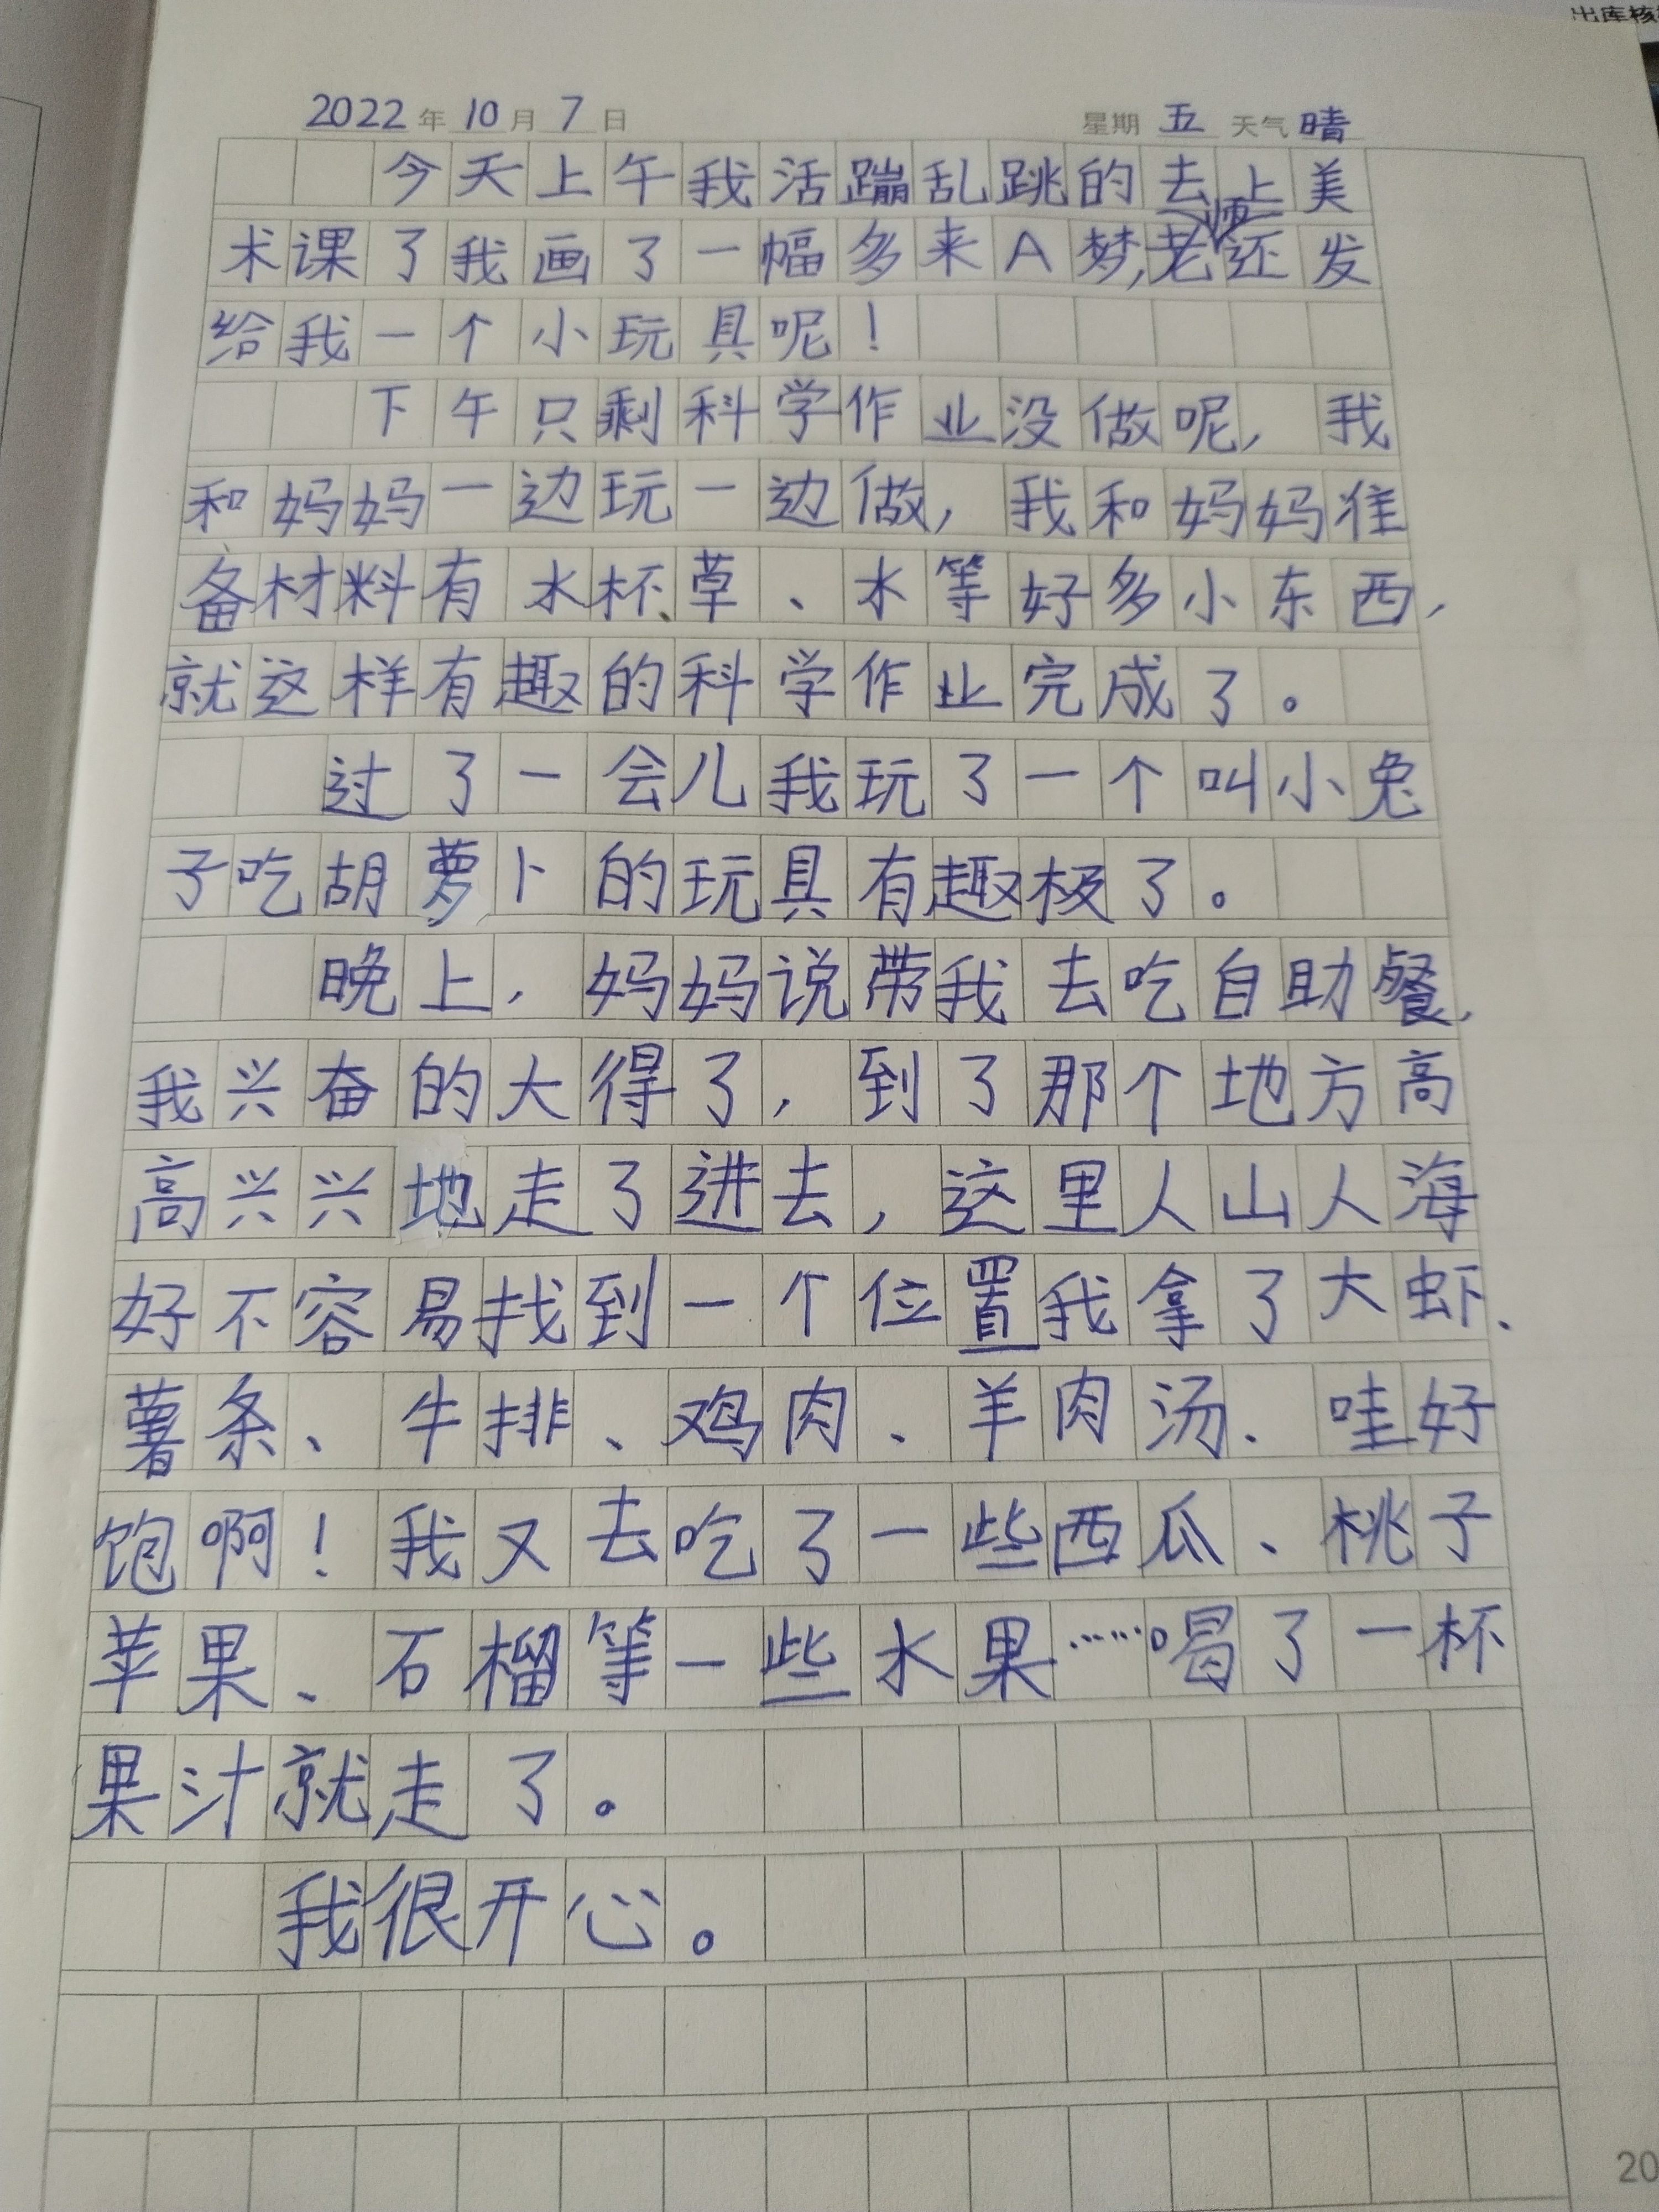 出库核
2022年10月7日 星期五 天气晴
今天上午我活蹦乱跳的去上美
术课了我画了一幅多来A梦,老师还发
给我一个小玩具呢！
下午只剩科学作业没做呢，我
和妈妈一边玩一边做，我和妈妈准
备材料有水杯、草、水等好多小东西，
就这样有趣的科学作业完成了。
过了一会儿我玩了一个叫小兔
子吃胡萝卜的玩具有趣极了。
晚上，妈妈说带我去吃自助餐，
我兴奋的大得了，到了那个地方高
高兴兴地走了进去，这里人山人海
好不容易找到一个位置我拿了大虾、
薯条、牛排、鸡肉、羊肉汤、哇好
饱啊！我又去吃了一些西瓜、桃子
苹果、石榴等一些水果……喝了一杯
果汁就走了。
我很开心。
20